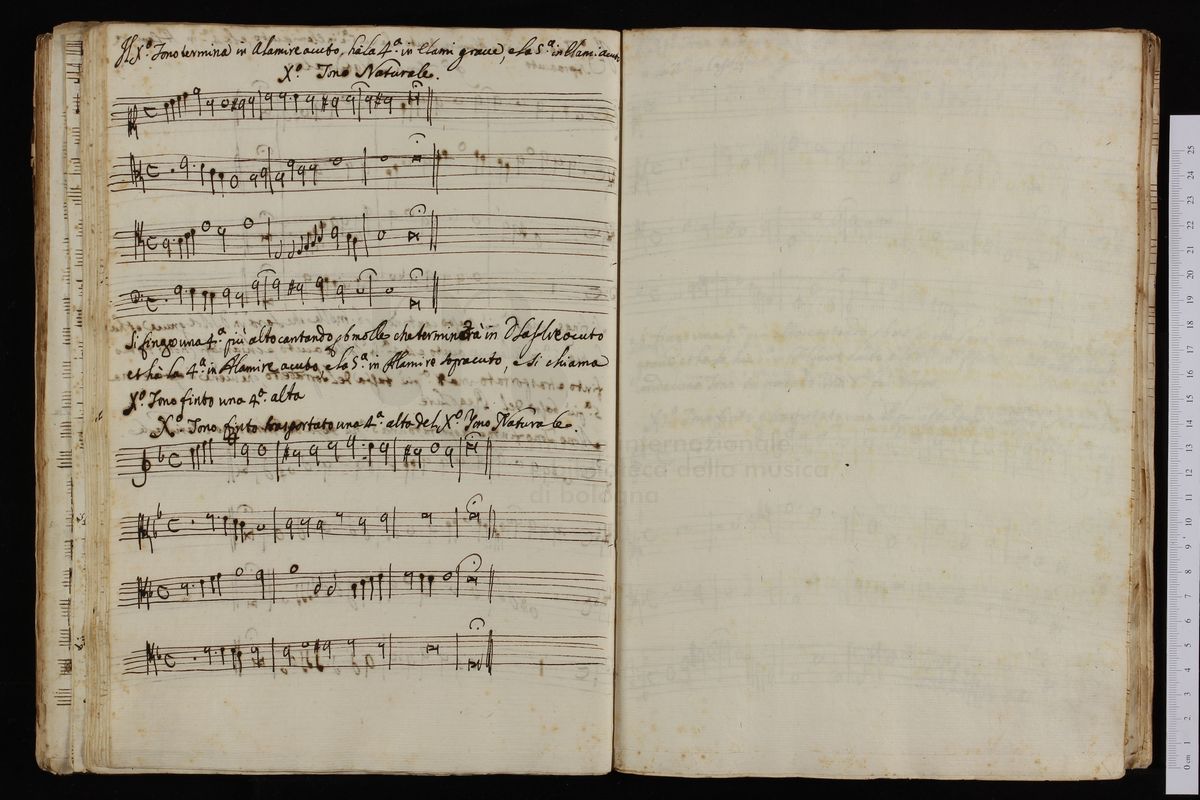 Il X.º Tono termina in Alamire acuto, hà la 4.ª in Elami grave, e la 5.ª in Elami acuto
X.º Tono Naturale.
Si finge una 4.ª più alto cantando p b molle che terminerà in Dlasolre acuto
et hà la 4.ª in Alamire acuto, e la 5.ª in Alamire sopracuto, e si chiama
X.º Tono finto una 4.ª alta
X.º Tono finto trasportato una 4.ª alta del X.º Tono Naturale.
internazionale
biblioteca della musica
di bologna
0 cm 1 2 3 4 5 6 7 8 9 10 11 12 13 14 15 16 17 18 19 20 21 22 23 24 25